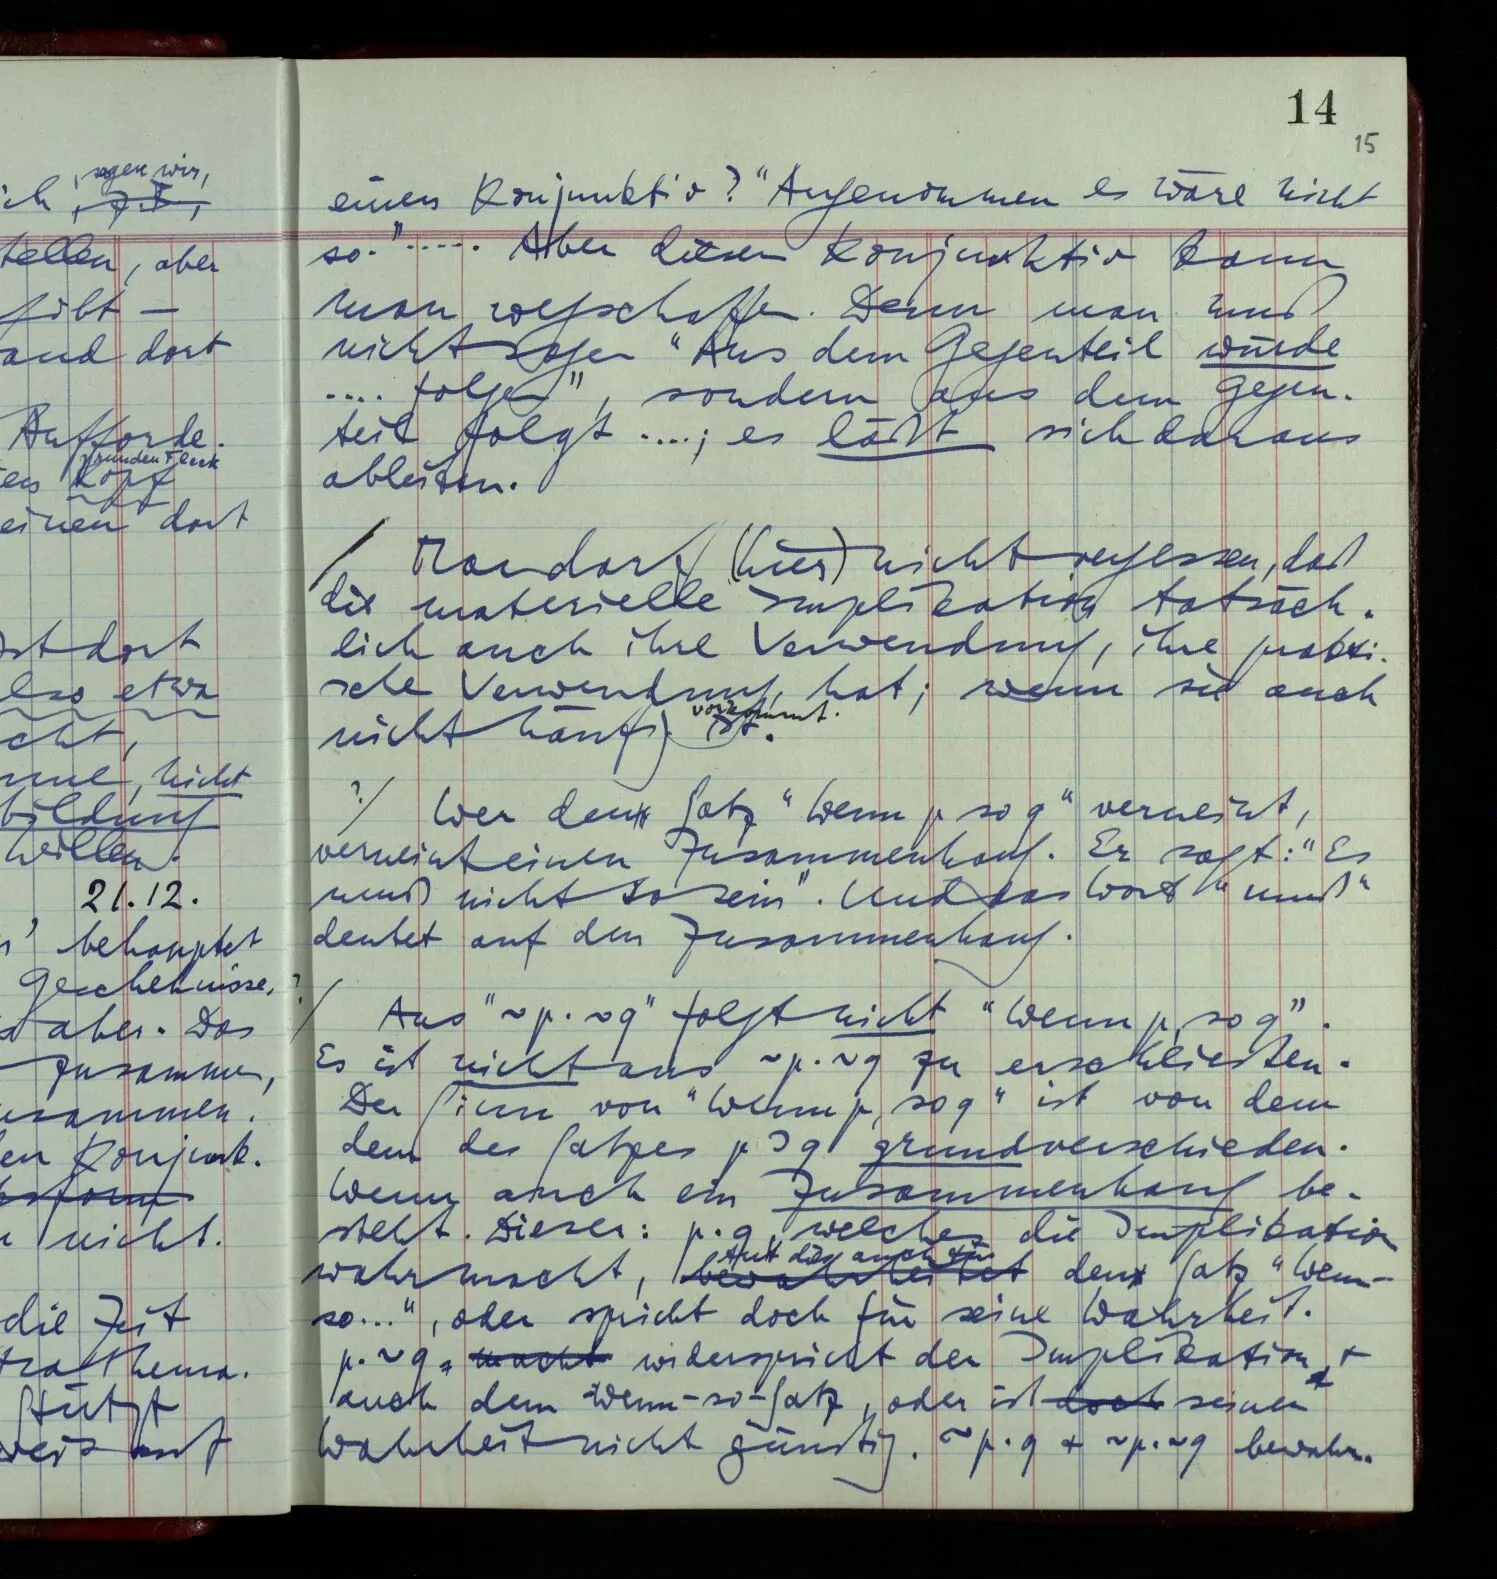 14
15
einen Konjunktiv? "Angenommen es wäre nicht
so." ..... Aber diesen Konjunktiv kann
man wegschaffen. Denn man muß
nicht sagen "Aus dem Gegenteil würde
.... folgen", sondern aus dem Gegen-
teil folgt ....; es läßt sich daraus
ableiten.
/ Man darf (hier) nicht vergessen, daß
die materielle Implikation tatsäch-
lich auch ihre Verwendung, ihre prakti-
sche Verwendung, hat; wenn sie auch
vorkommt.
nicht häufig ist.
?/ Wer den Satz "Wenn p so q" verneint,
verneint einen Zusammenhang. Er sagt: "Es
muß nicht so sein". Und das Wort "muß"
deutet auf den Zusammenhang.
?/ Aus "~p.~q" folgt nicht "Wenn p, so q".
Es ist nicht aus ~p.~q zu erschließen.
Der Sinn von "Wenn p, so q" ist von dem
dem des Satzes p⊃q grundverschieden.
Wenn auch ein Zusammenhang be-
steht. Dieser: p.q, welches die Implikation
tut dies auch für
wahrmacht, bewahrheitet den Satz "Wenn-
so...", oder spricht doch für seine Wahrheit.
p.~q macht widerspricht der Implikation, +
auch dem Wenn-so-Satz, oder ist doch seiner
Wahrheit nicht günstig. ~p.q + ~p.~q bewahr-
sagen wir,
ich, z.B.,
tellen, aber
gibt —
and dort
Aufforde-
runden Fleck
Kopf
einen dort
ist dort
also etwa
nicht
bildung
21.12.
behauptet
Geschehnisse,
aber. Das
zusammen,
zusammen.
en Konjunk-
nicht.
die Zeit
Stützt
auf